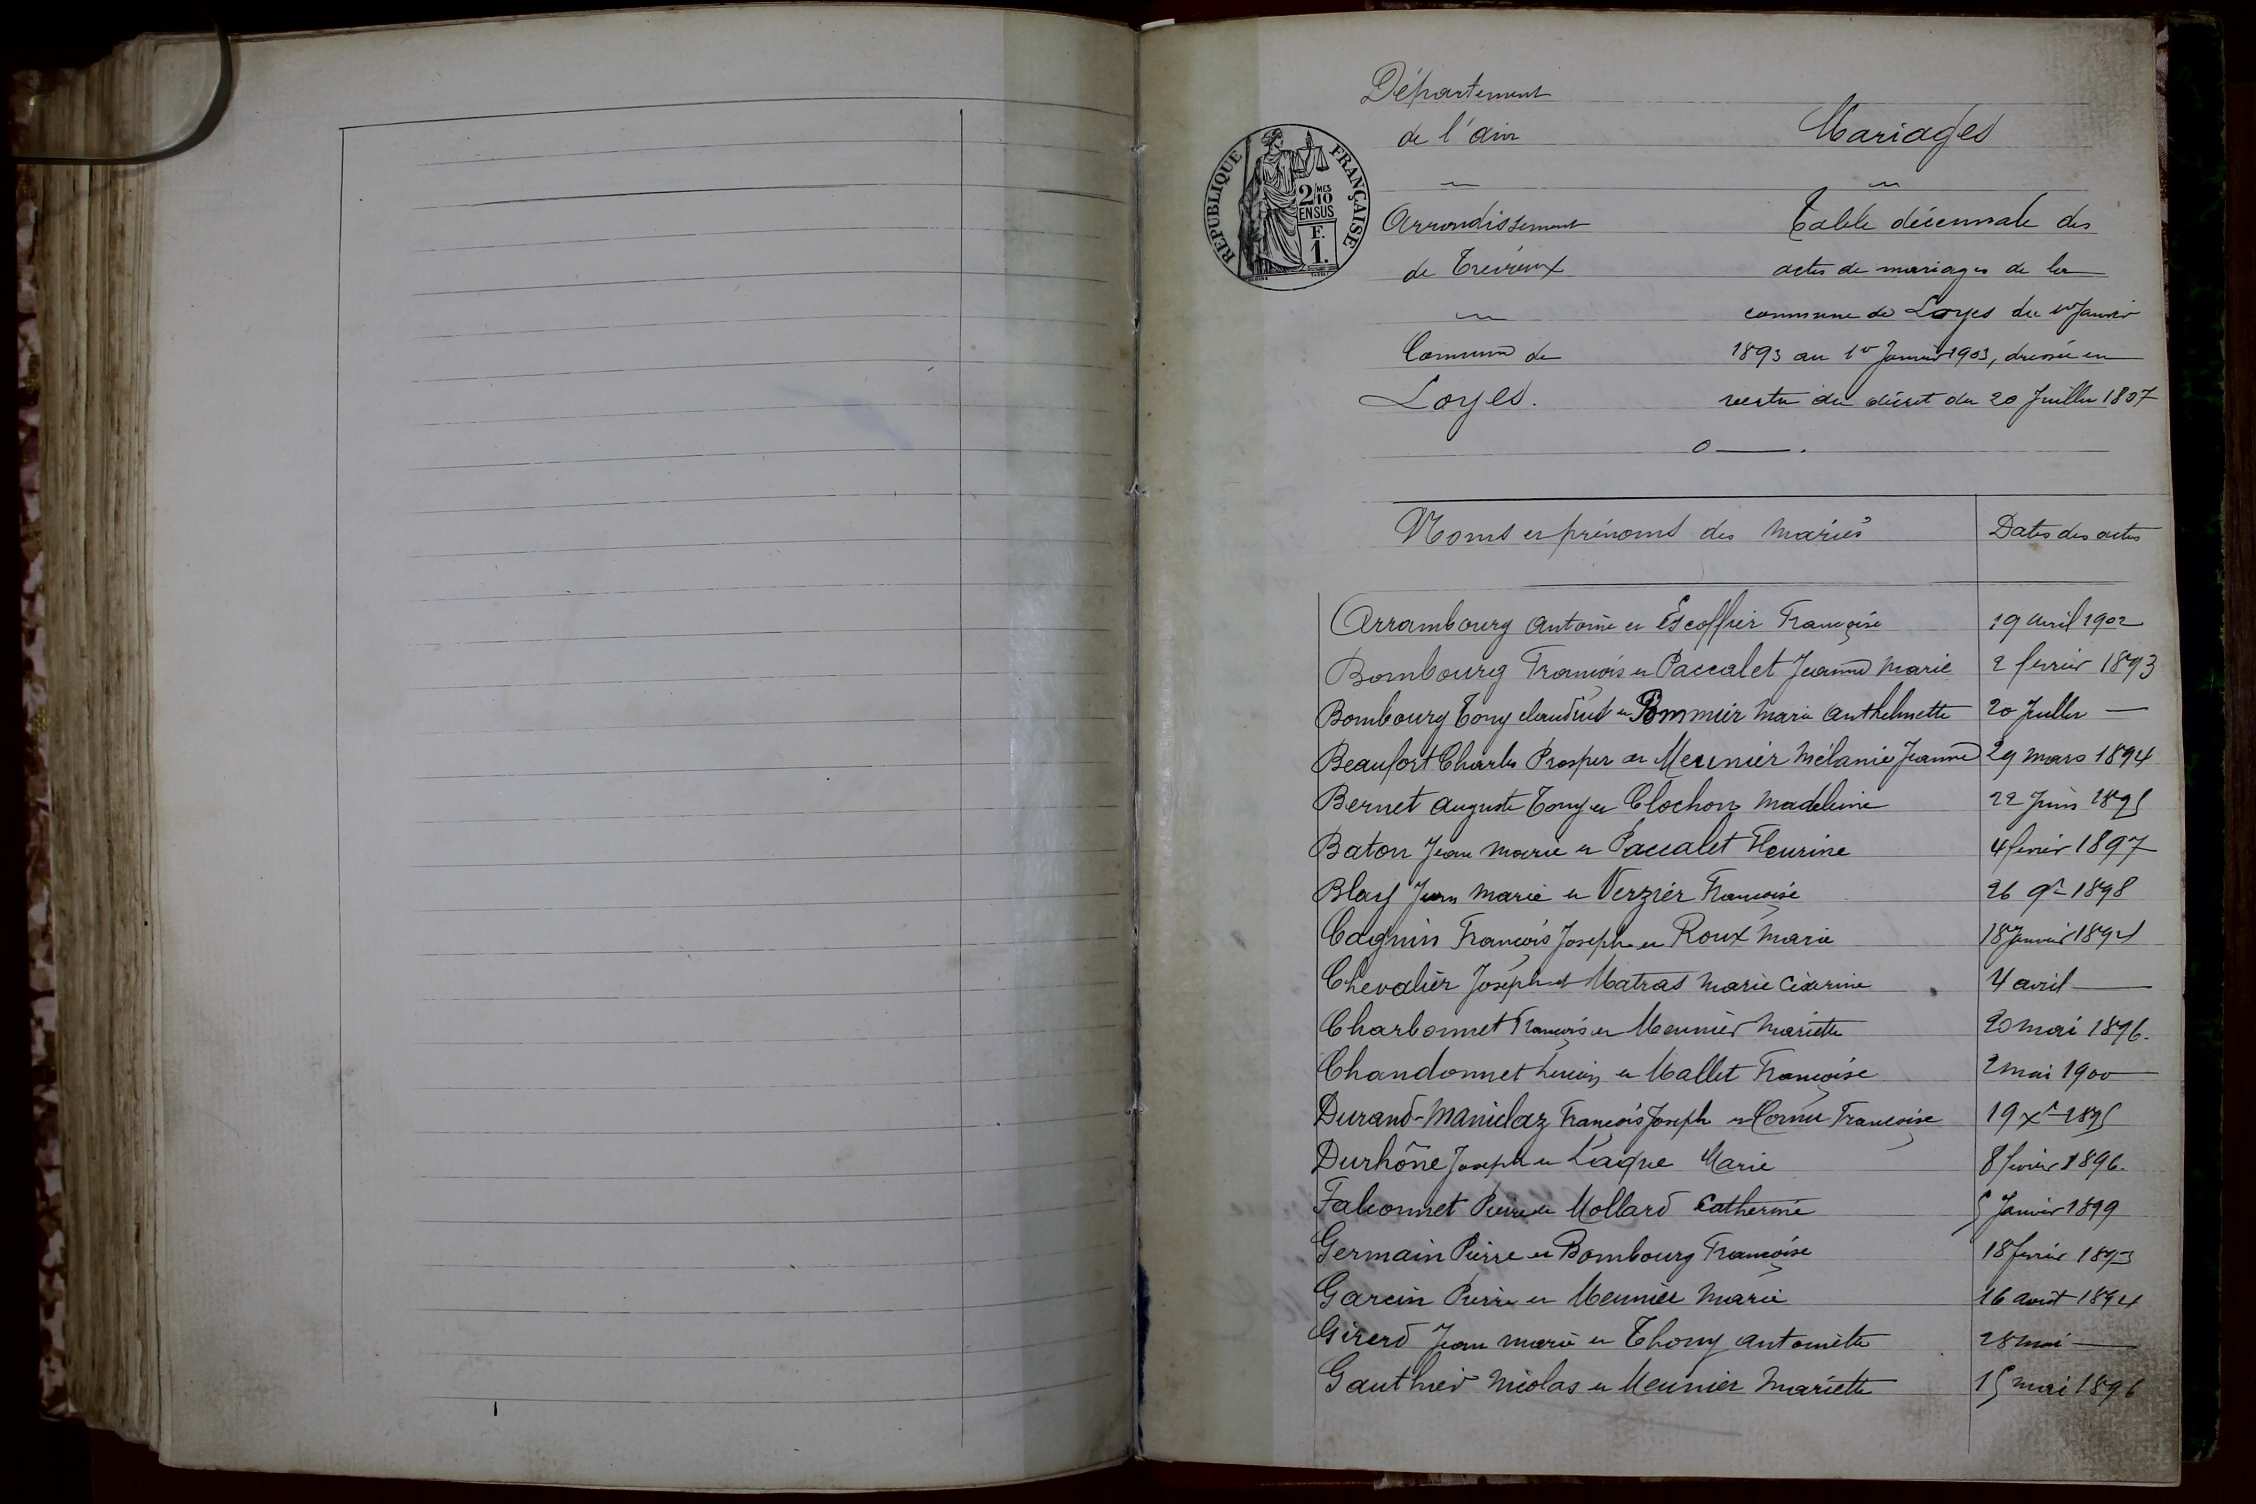 Département
de l'ain
Arrondissement
de Trévoux
Commune de
Loyes.
REPUBLIQUE FRANÇAISE
2/10 MES
EN SUS
F.
1.
Mariages
Table décennale des
actes de mariages de la
commune de Loyes du 1er Janvier
1893 au 1er Janvier 1903, dressée en
vertu du décret du 20 Juillet 1807
Noms et prénoms des mariés Dates des actes
Arrambourg Antoine et Escoffier Françoise 19 avril 1902
Bombourg François et Paccalet Jeanne Marie 2 février 1893
Bombourg Tony claudius et Pommier Marie Anthelmette 20 Juillet —
Beaufort Charles Prosper et Meunier Mélanie Jeanne 29 mars 1894
Bernet Auguste Tony et Clochon Madeleine 22 Juin 1895
Baton Jean Marie et Paccalet Fleurine 4 février 1897
Blay Jean Marie et Verzier Françoise 26 9re 1898
Cagnin François Joseph et Roux Marie 18 Janvier 1894
Chevalier Joseph et Matras Marie Césarine 4 avril —
Charbonnet François et Meunier Mariette 20 mai 1896.
Chandonnet Lucien et Mallet Françoise 2 mai 1900
Durand-Maniclaz François Joseph et Cornu Françoise 19 Xre 1895
Durhône Joseph et Laque Marie 8 février 1896.
Falconnet Pierre et Mollard Catherine 5 Janvier 1899
Germain Pierre et Bombourg Françoise 18 février 1893
Garcin Pierre et Meunier Marie 16 août 1894
Girerd Jean Marie et Thony Antoinette 28 mai —
Gauthier Nicolas et Meunier Mariette 15 mai 1896